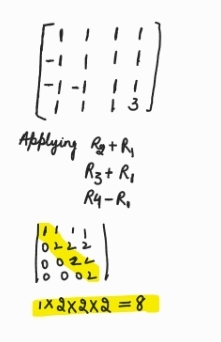 1 1 1 1
-1 1 1 1
-1 -1 1 1
1 1 1 3
Applying R2+R1
R3+R1
R4-R1
1 1 1 1
0 2 2 2
0 0 2 2
0 0 0 2
1×2×2×2 = 8